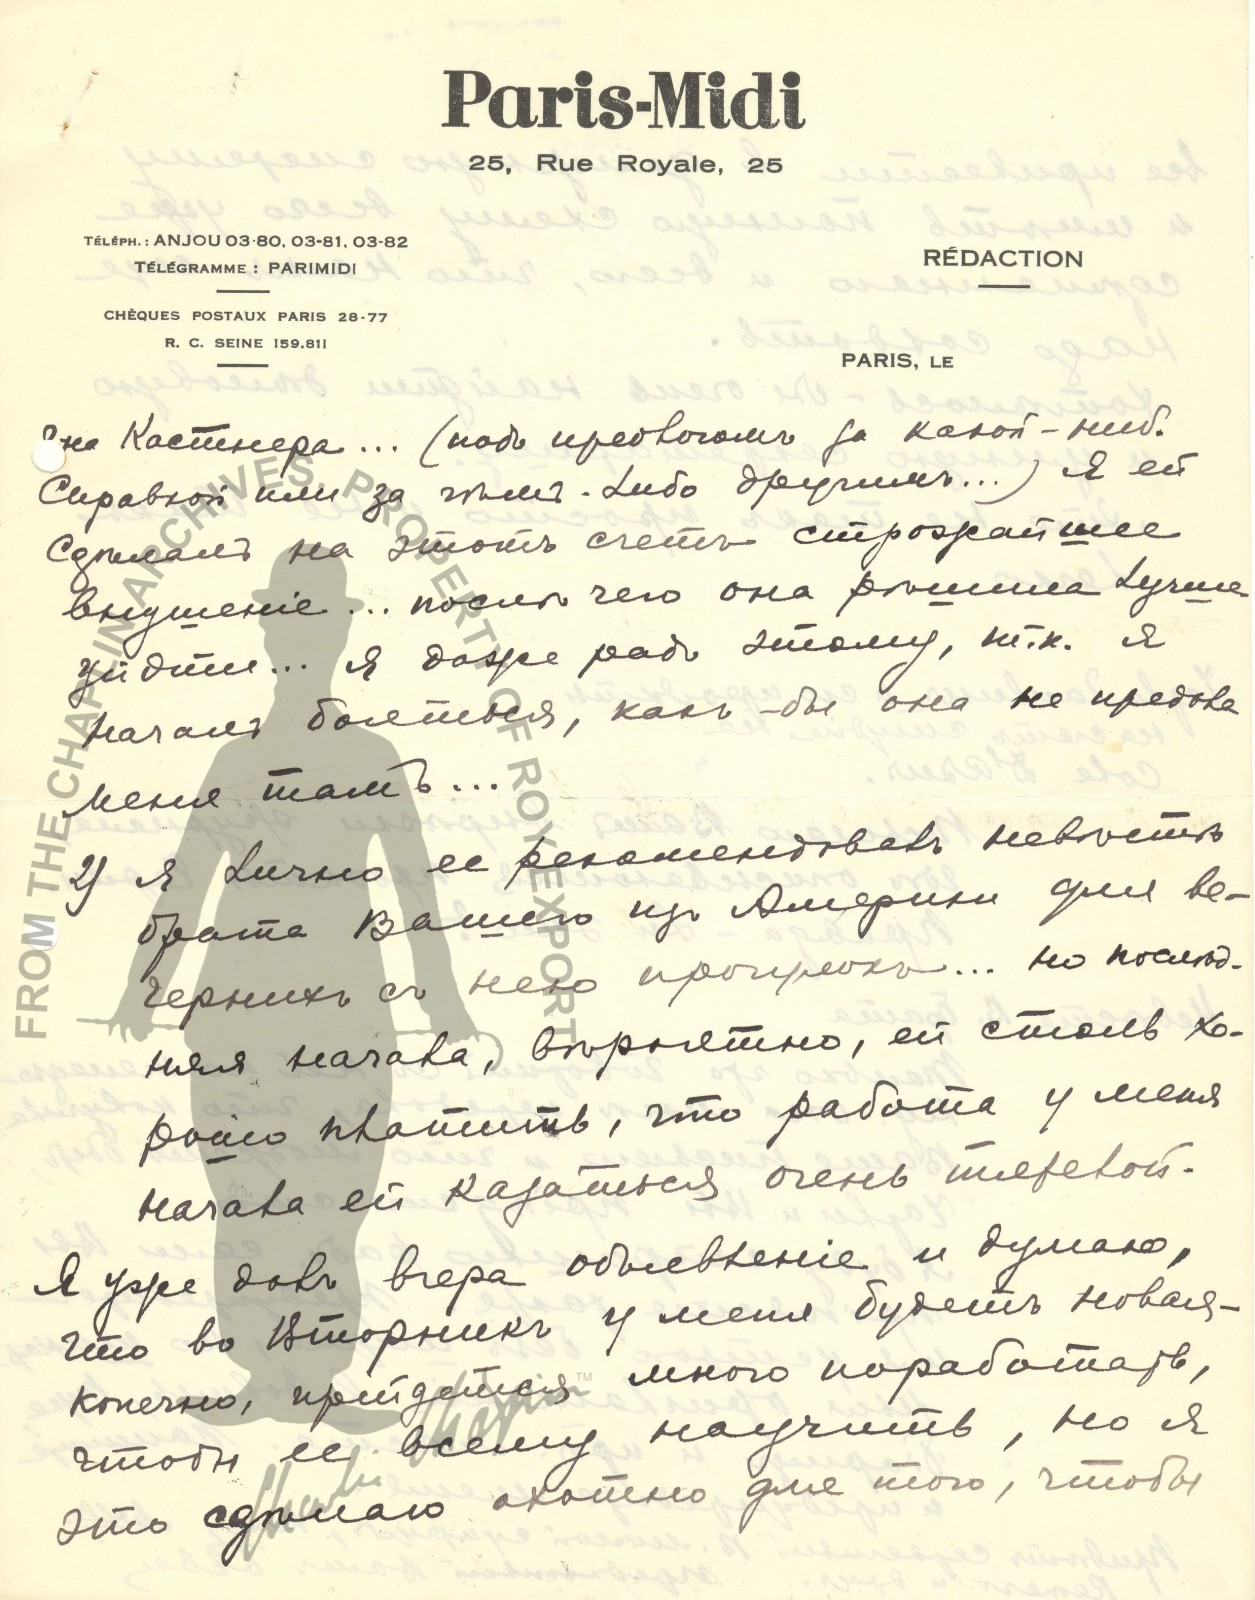 Paris-Midi
25, Rue Royale, 25
TÉLÉPH.: ANJOU 03-80, 03-81, 03-82
TÉLÉGRAMME : PARIMIDI
RÉDACTION
CHÈQUES POSTAUX PARIS 28-77
R. C. SEINE 159.811
PARIS, LE
на Кастнера... (подъ предлогомъ за какой-ниб.
Справкой или за чѣмъ-либо другимъ...) Я ей
Сдѣлалъ на этотъ счетъ строжайшее
внушеніе... послѣ чего она рѣшила лучше
уйдти... Я даже радъ этому, т.к. я
началъ бояться, какъ-бы она не предала
меня тамъ...
2) Я лично ее рекомендовалъ невѣстѣ
брата Вашего изъ Америки для ве-
чернихъ съ нею прогулокъ... но послѣд-
няя начала, вѣроятно, ей столь хо-
рошо платить, что работа у меня
начала ей казаться очень тяжелой.
Я уже далъ вчера объявленіе и думаю,
что во Вторникъ у меня будетъ новая-
конечно, прийдется много поработать,
чтобы ее всему научить, но я
это сдѣлаю охотно для того, чтобы
FROM THE CHAPLIN ARCHIVES. PROPERTY OF ROY EXPORT
TM